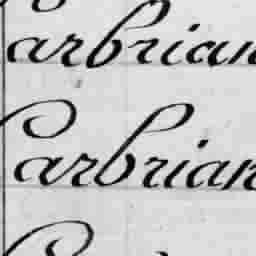 Carbrian
Carbrian